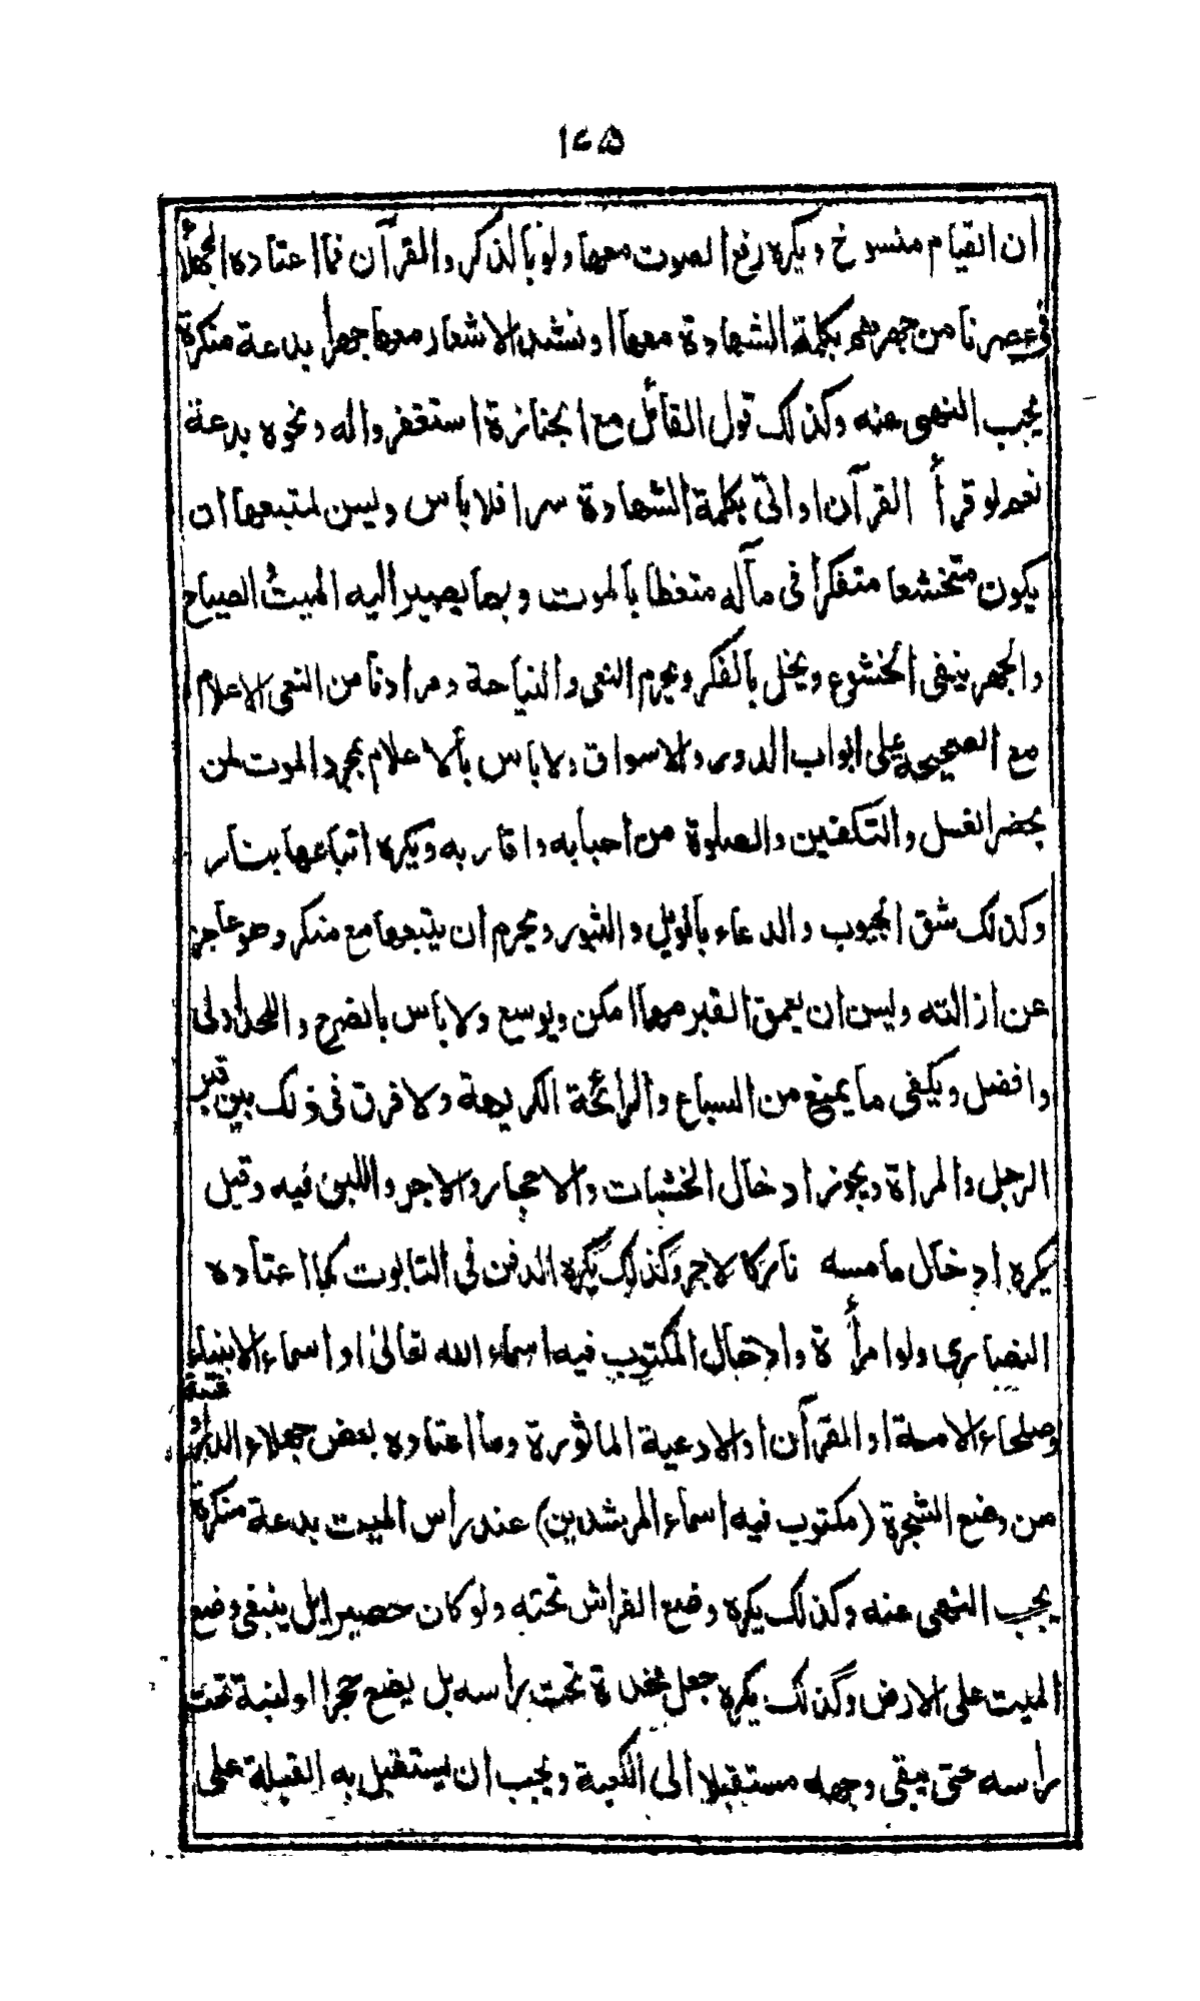 ١٤٥
ان القيام منسوخ ويكره رفع الصوت معها ولو بالذكر والقرآن فما اعتاده الجهلا
في عصرنا من جهرهم بكلمة الشهادة معها او نشد الاشعار معها جهرا بدعة منكرة
يجب النهي عنه وكذلك قول القائل مع الجنازة استغفروا له ونحوه بدعة
نعم لو قرأ القرآن او اتى بكلمة الشهادة سرا فلا باس وليس لمتبعها ان
يكون متخشعا متفكرا في مآله متعظا بالموت وبما يصير اليه الميت الصياح
والجهر ينفى الخشوع ويخل بالفكر ويحرم النعى والنياحة ومرادنا من النعى الاعلام
مع الصيحة على ابواب الدور والاسواق ولا باس بالاعلام بمجرد الموت لمن
يحضر الغسل والتكفين والصلوة من احبابه واقاربه ويكره اتباعها بنار
وكذلك شق الجيوب والدعاء بالويل والثبور ويحرم ان يتبعها مع منكر وهو عاجز
عن ازالته وليس ان يعمق القبر مهما امكن ويوسع ولا باس بالضرح واللحد اولى
وافضل ويكفى ما يمنع من السباع والرائحة الكريهة ولا فرق في ذلك بين قبر
الرجل والمراة ويجوز ادخال الخشبات والاحجار والاجر واللبن فيه وقيل
يكره ادخال ما مسه نار كالاجر وكذلك يكره الدفن في التابوت كما اعتاده
النصارى ولو امرأة وادخال المكتوب فيه اسماء الله تعالى او اسماء الانبياء
وصلحاء الامة او القرآن او الادعية الماثورة وما اعتاده بعض جهلاء
من وضع الشجرة (مكتوب فيه اسماء المرشدين) عند راس الميت بدعة منكرة
يجب النهى عنه وكذلك يكره وضع الفراش تحته ولو كان حصيرا بل ينبغى وضع
الميت على الارض وكذلك يكره جعل مخدة تحت راسه بل يضع حجرا او لبنة تحت
راسه حتى يبقى وجهه مستقبلا الى الكعبة ويجب ان يستقبل به القبلة على